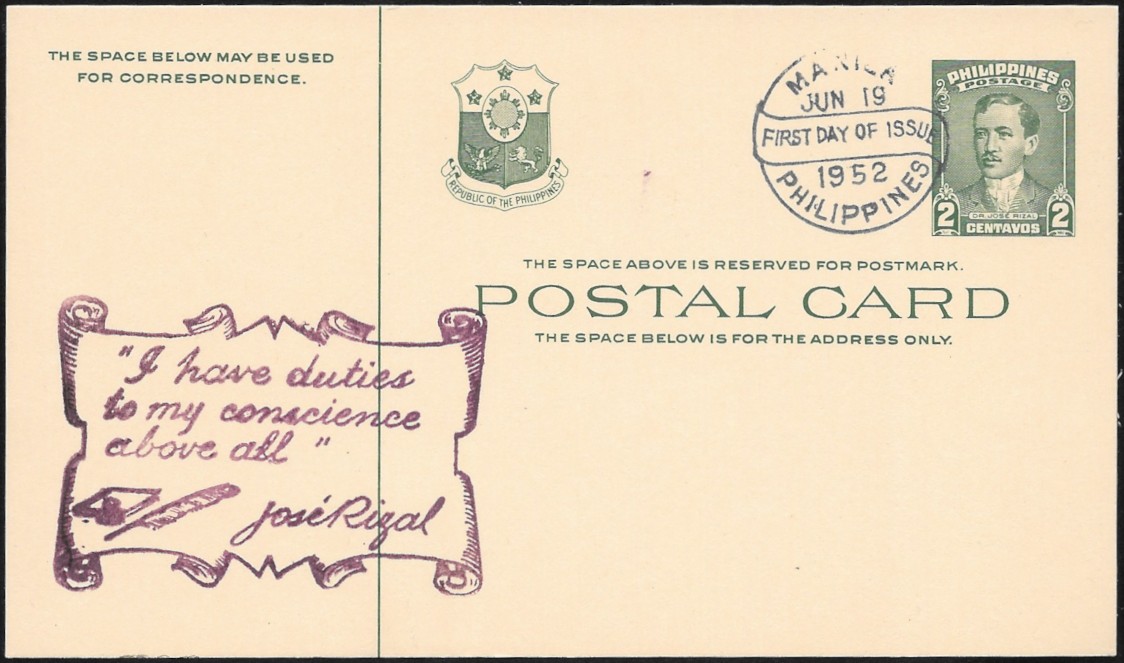 THE SPACE BELOW MAY BE USED
FOR CORRESPONDENCE.
REPUBLIC OF THE PHILIPPINES
MANILA
JUN 19
FIRST DAY OF ISSUE
1952
PHILIPPINES
PHILIPPINES
POSTAGE
DR. JOSÉ RIZAL
2 CENTAVOS 2
THE SPACE ABOVE IS RESERVED FOR POSTMARK.
POSTAL CARD
THE SPACE BELOW IS FOR THE ADDRESS ONLY.
"I have duties
to my conscience
above all"
José Rizal